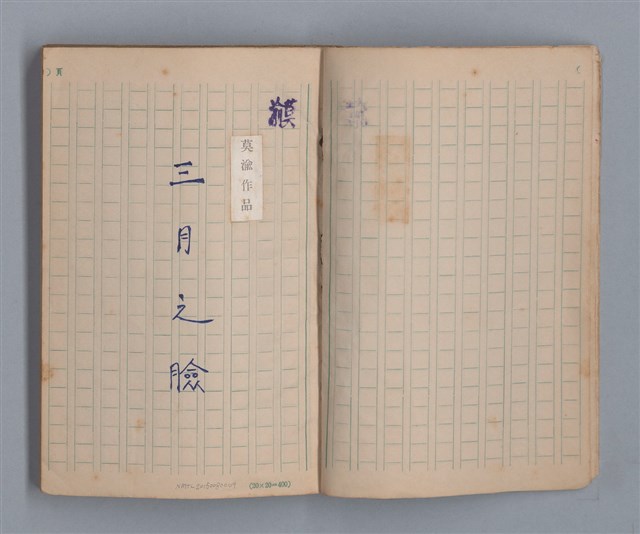 頁
莫渝作品
三月之臉
(20×20=400)